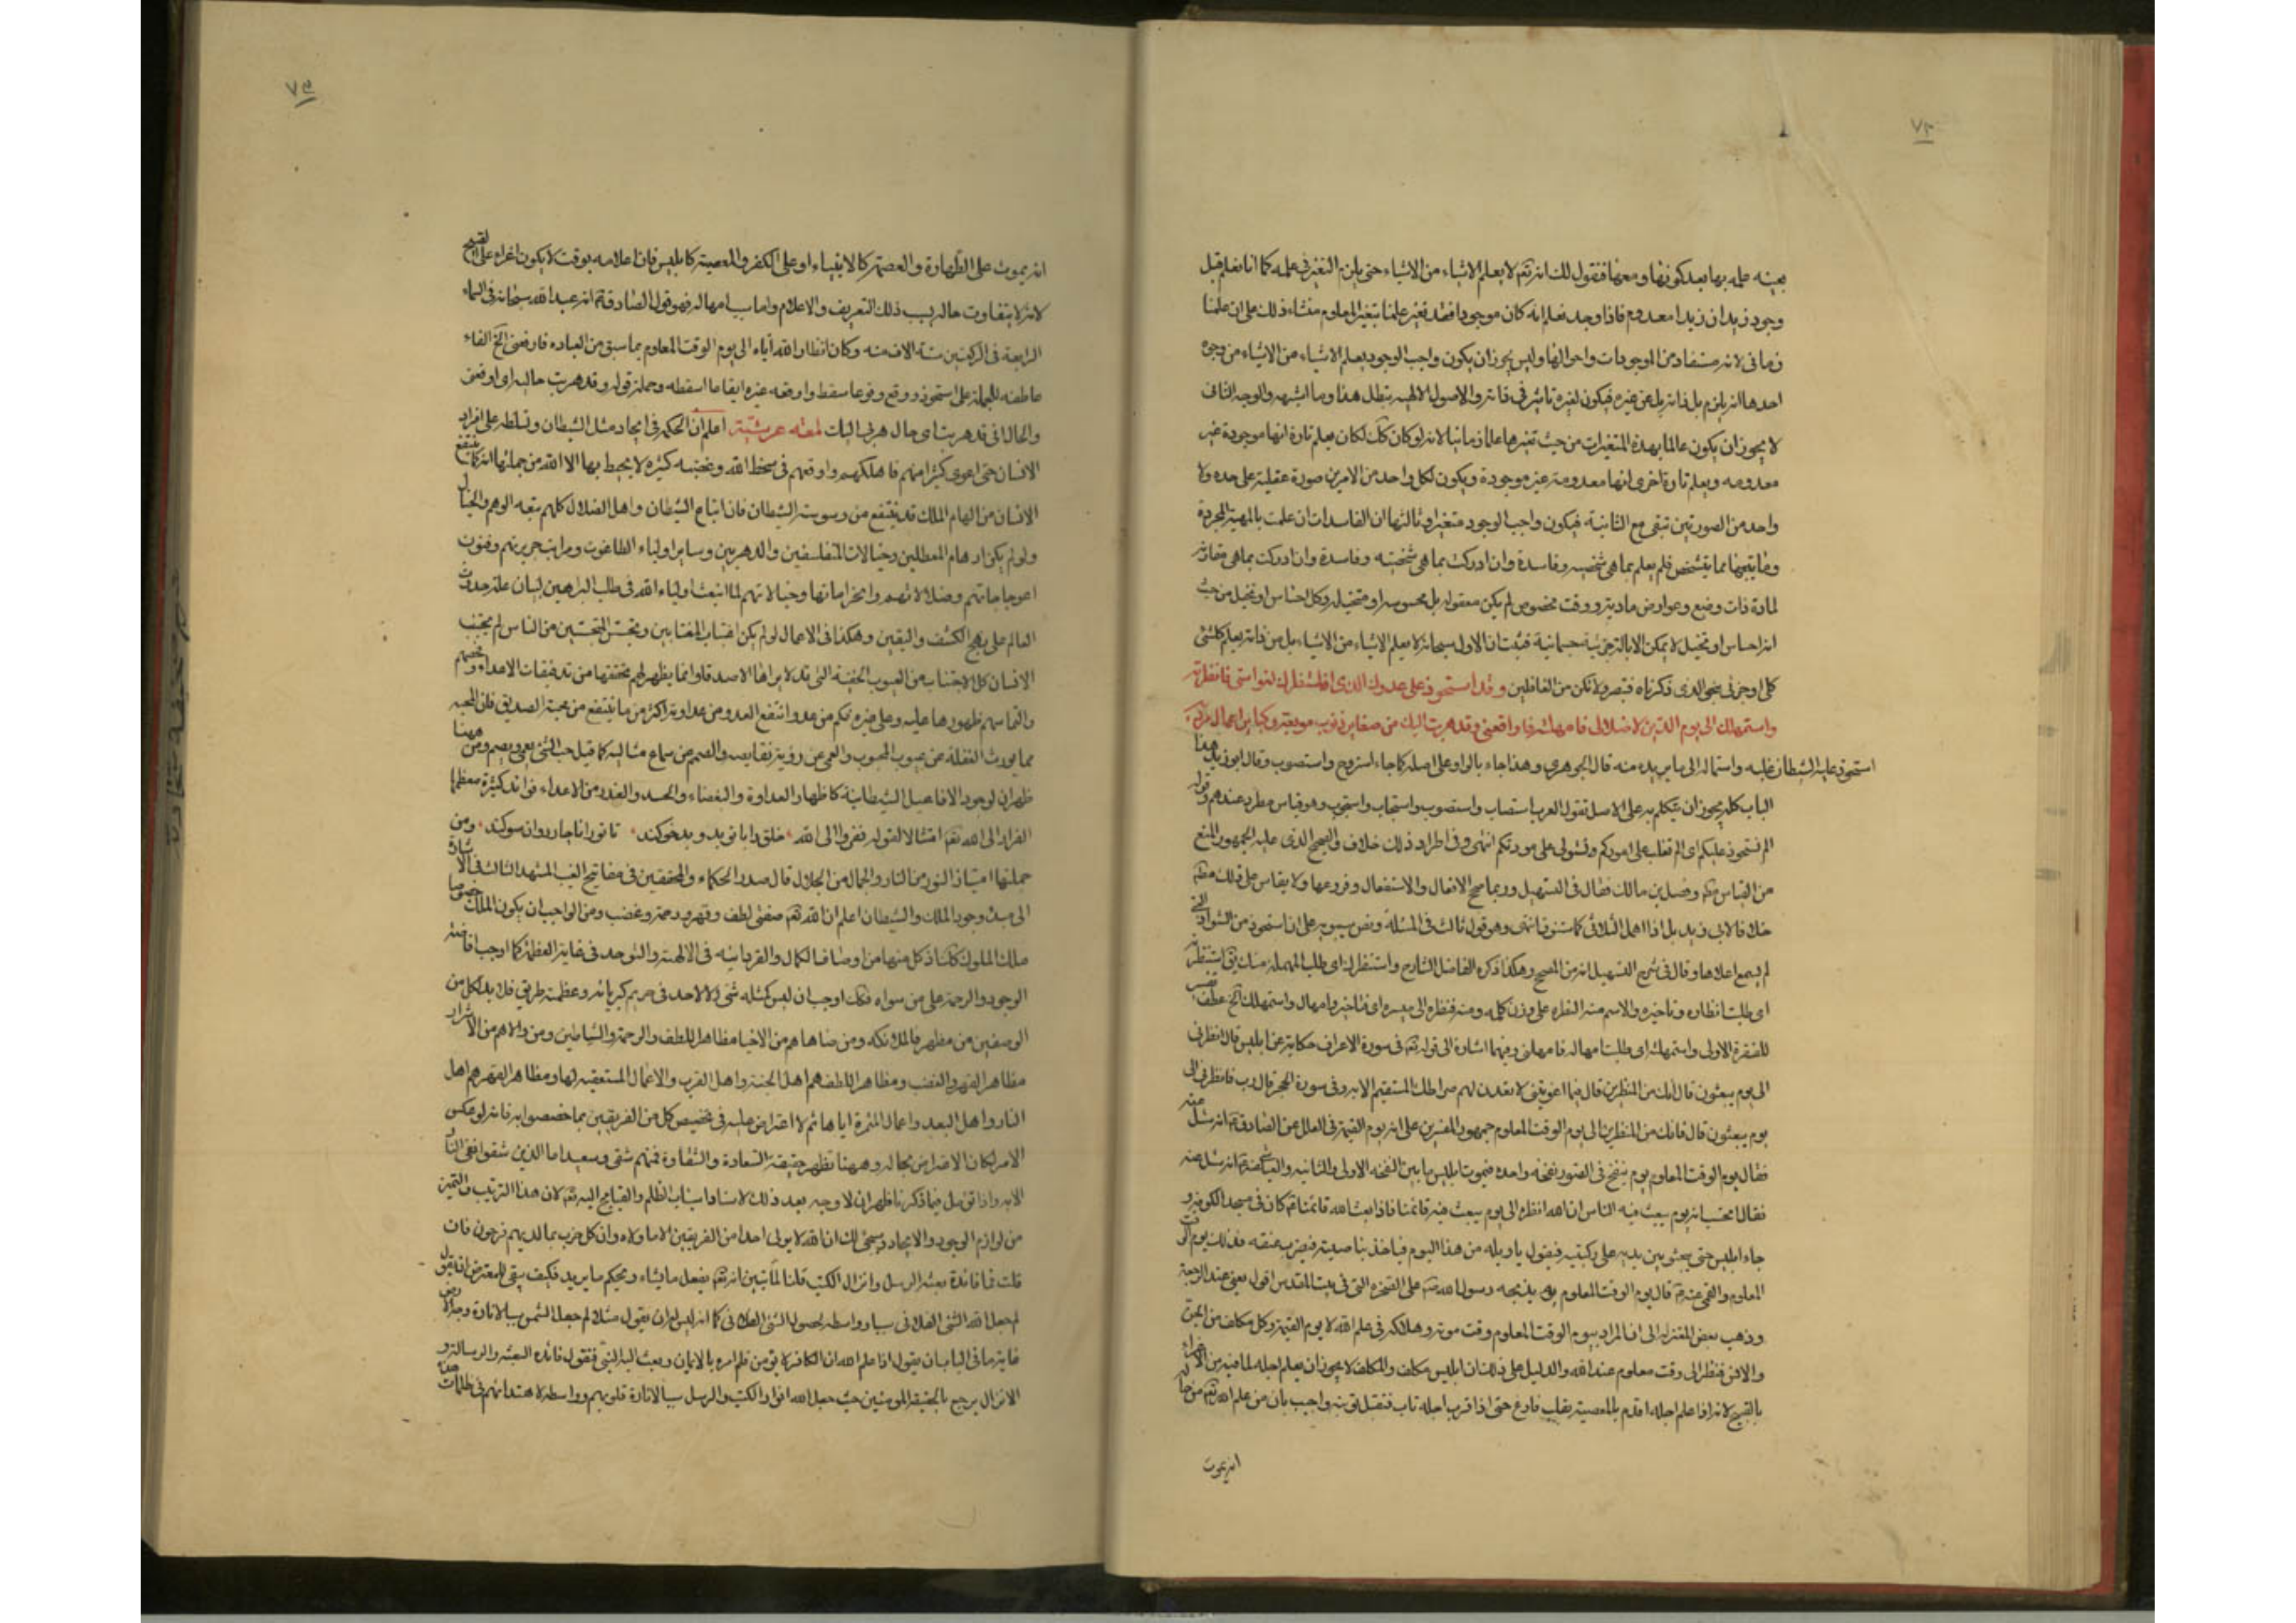 ٧٢
بعينه علمه بها بعد كونها ومعها فنقول لك انه تعم لا يعلم الاشياء من الاشياء حتى يلزم التغير فى علمه كما انا نعلم قبل
وجود زيد ان زيدا معدوم فاذا وجد نعلم انه كان موجودا فقد تغير علمنا بتغير المعلوم منشاء ذلك على ان علمنا
زمانى لانه مستفاد من الموجودات واحوالها وليس يجوز ان يكون واجب الوجود يعلم الاشياء من الاشياء من وجوه
احدها انه يلزم بل ذاته بل عن غيره فيكون لغيره تاثير فى ذاته والاصول الالهيه يبطل هذا وما اشبهه والوجه الثانى
لا يجوز ان يكون عالما بهذه المتغيرات من حيث تغيرها علما زمانيا لانه لو كان كك لكان يعلم تارة انها موجودة غير
معدومه ويعلم تارة اخرى انها معدومة غير موجودة ويكون لكل واحد من الامرين صورة عقلية على حده ولا
واحد من الصورتين تبقى مع الثانية فيكون واجب الوجود متغيرا وثالثها ان الفاسدات ان علمت بالمهية المجردة
وما يتبعها مما يتشخص فلم يعلم بما هى شخصيه وفاسدة وان ادركت بما هى شخصيه وفاسدة وان ادركت بما هى مقارنة
لمادة ذات وضع وعوارض مادية ووقت مخصوص لم يكن معقوله بل محسوسه او متخيله وكل احساس او تخيل من حيث
انه احساس او تخيل لا يمكن الا بالة جزئية جسمانية فثبت ان الاول سبحانه لا يعلم الاشياء من الاشياء بل من ذاته يعلم كلشئ
كلى او جزئى بنحو الذى ذكرناه فتبصر ولا تكن من الغافلين وقد استحوذ على عدوك الذى استنظرك لغوايتى فانظرته
واستمهلك الى يوم الدين لاضلالى فامهلته فاوقعنى وقد هربت اليك من صغاير ذنوب موبقه وكباير اعمال مرديه
استحوذ عليه الشيطان غلبه واستماله الى ما يريده منه قال الجوهرى وهذا جاء بالواو على اصله كما جاء استروح واستصوب وقال ابو زيد هذا
الباب كله يجوز ان يتكلم به على الاصل تقول العرب استصاب واستصوب واستجاب واستجوب وهو قياس مطرد عندهم وقوله
الم نستحوذ عليكم اى الم نغلب على اموركم ونستولى على مودتكم انتهى وفى اطراد ذلك خلاف والصحيح الذى عليه الجمهور المنع
من القياس وفصل بن مالك فقال فى التسهيل وربما صح الافعال والاستفعال وفروعها ولا يقاس على ذلك مطم
خلافا لابى زيد بل اذا اهمل الثلاثى كاستنوق انتهى وهو قول ثالث فى المسئلة ونص سيبويه على ان استحوذ من الشواذ التى
لم يسمع اعلالها وقال فى شرح التسهيل انه من المصحح وهكذا ذكره الفاضل الشارح واستنظرك اى طلب المهملة منك يق استنظرته
اى طلبت انظاره وتاخيره والاسم منه النظره على وزن كلمه ومنه فنظرة الى ميسره اى فتاخير وامهال واستمهلك الخ عطف تفسير
للفقرة الاولى واستمهلك اى طلبت امهاله فامهلنى وفيهما اشارة الى قوله تعم فى سورة الاعراف حكاية عن ابليس قال انظرنى
الى يوم يبعثون قال انك من المنظرين قال فبما اغويتنى لاقعدن لهم صراطك المستقيم الايه وفى سورة الحجر قال رب فانظرنى الى
يوم يبعثون قال فانك من المنظرين الى يوم الوقت المعلوم جمهور المفسرين على انه يوم القيمة فى العلل عن الصادق ع انه سئل عنه
فقال يوم الوقت المعلوم يوم ينفخ فى الصور نفخه واحده فيموت ابليس ما بين النفخه الاولى والثانيه والعياشى عنه ع انه سئل عنه
فقال اتحسب انه يوم يبعث فيه الناس ان الله انظره الى يوم يبعث فيه قائمنا فاذا بعث الله قائمنا كان فى مسجد الكوفه و
جاء ابليس حتى يجثو بين يديه على ركبتيه فيقول يا ويله من هذا اليوم فياخذ بناصيته فيضرب عنقه فذلك يوم الوقت
المعلوم والقمى عنه ع قال يوم الوقت المعلوم يوم يذبحه رسول الله ص على الصخره التى فى بيت المقدس اقول يعنى عند الرجعة
وذهب بعض المعتزله الى ان المراد بيوم الوقت المعلوم وقت موته وهلاكه فى علم الله لا يوم القيمة وكل مكلف من الجن
والانس فنظر الى وقت معلوم عند الله والدليل على ذلك ان ابليس مكلف والمكلف لا يجوز ان يعلم اجله لما فيه من الاغراء
بالقبيح لانه اذا علم اجله اقدم بالمعصية بقلب فارغ حتى اذا قرب اجله تاب فتقبل توبته واجيب بان من علم الله تعم من حاله
انه يموت
انه يموت على الطهارة والعصمة كالانبياء او على الكفر والمعصية كابليس فان اعلامه بوقت لا يكون اغراء على القبيح
لانه لا يتفاوت حاله بسبب ذلك التعريف والاعلام واما سبب امهاله فهو قول الصادق ع انه عبد الله سبحانه فى السماء
الرابعة فى الركعتين ستة الاف سنه وكان انظار الله اياه الى يوم الوقت المعلوم بما سبق من العباده فاوقعنى الخ الفاء
عاطفه للجملة على استحوذ ووقع وقوعا سقط واوقعه غيره ايقاعا اسقطه وجملة قوله وقد هربت حاليه اى اوقعنى
والحال انى قد هربت اى حال هربى اليك لمعه عرشيه اعلم ان الحكمه فى ايجاد مثل الشيطان وتسلطه على افراد
الانسان حتى اغوى كثيرا منهم فاهلكهم واوقعهم فى سخط الله وغضبه كثيره لا يحيط بها الا الله من جملتها انه كما ينتفع
الانسان من الهام الملك قد ينتفع من وسوسة الشيطان فان اتباع الشيطان واهل الضلال كلهم تبعه الوهم والخيال
ولو لم يكن اوهام المعطلين وخيالات المتفلسفين والدهريين وساير اولياء الطاغوت ومراتب جربزتهم وفنون
اعوجاجاتهم وضلالاتهم وانحرافاتها وخيالاتهم لما انبعث اولياء الله فى طلب البراهين لبيان علة حدوث
العالم على نهج الكشف واليقين وهكذا فى الاعمال لو لم يكن اغتياب المغتابين وتجسس المتجسسين من الناس لم يجتنب
الانسان كل الاجتناب من العيوب الخفية التى قد لا يراها الاصدقاء وانما يظهر لهم تحققها من تدقيقات الاعداء وتفحصهم
والتماسهم ظهورها عليه وعلى غيره فكم من عدو انتفع العدو من عداوته اكثر من ما ينتفع من محبة الصديق فان المحبه
مما يورث الغفله عن عيوب المحبوب والعمى عن رؤية نقايصه والصمم عن سماع مثالبه كما قيل حب الشئ يعمى ويصم ومن هيهنا
ظهر ان لوجود الافاعيل الشيطانية كاظهار العداوة والبغضاء والحسد والغدر من الاعداء فوائد كثيرة معظمها
الفرار الى الله تعم امتثالا لقوله ففروا الى الله خلق را با تو بد و بدخو كند تا تو را ناچار رو ان سو كند ومن
جملتها امتياز النور من النار والجمال من الجلال قال صدر الحكماء والمحققين فى مفاتيح الغيب المشهد الثالث فى الاشارة
الى مبدء وجود الملك والشيطان اعلم ان لله تعم صفتى لطف وقهر ورحمة وغضب ومن الواجب ان يكون الملك خصوصا
ملك الملوك كك اذ كل منهما من اوصاف الكمال والفردانيه فى الالهيه والتوحد فى غاية العظمة كما اوجب افاضه
الوجود والرحمة على من سواه فكك اوجب ان ليس كمثله شئ ولا لاحد فى حريم كبريائه وعظمته طريق فلا بد لكل من
الوصفين من مظهر فالملائكه ومن ضاهاهم من الاخيار مظاهر اللطف والرحمة والشياطين ومن والاهم من الاشرار
مظاهر القهر والغضب ومظاهر اللطف هم اهل الجنة واهل القرب والاعمال المستعقبه لها ومظاهر القهر هم اهل
النار واهل البعد واعمال المثمرة اياها ثم لا اعتراض عليه فى تخصيص كل من الفريقين بما خصصوا به فانه لو عكس
الامر لكان الاعتراض بحاله وههنا تظهر حقيقة السعادة والشقاوة فمنهم شقى وسعيد اما الذين شقوا ففى النار
الايه واذا تؤمل فيما ذكرنا ظهر ان لا وجه بعد ذلك لاسناد اسباب الظلم والقبايح اليه تعم لان هذا الترتيب والتميز
من لوازم الوجود والايجاد وسيجئ لك ان الله لا يولى احدا من الفريقين الا ما ولاه وان كل حزب بما لديهم فرحون فان
قلت فما فائدة بعثة الرسل وانزال الكتب قلنا لما تبين انه تعم يفعل ما يشاء ويحكم ما يريد فكيف يبقى للمعترض ان يقول
لم جعل الله الشئ الفلانى سببا وواسطه لحصول الشئ الفلانى كما انه ليس له ان يقول مثلا لم جعل الشمس سببا لانارة وجه الارض
غاية ما فى الباب ان يقول اذا علم الله ان الكافر لا يؤمن فلم امره بالايمان وبعث اليه النبى فنقول فائده البعثه والرسالة و
الانزال يرجع بالحقيقة المؤمنين حيث جعل الله انوار الكتب والرسل سببا لانارة قلوبهم وواسطه لاهتدائهم فى ظلمات